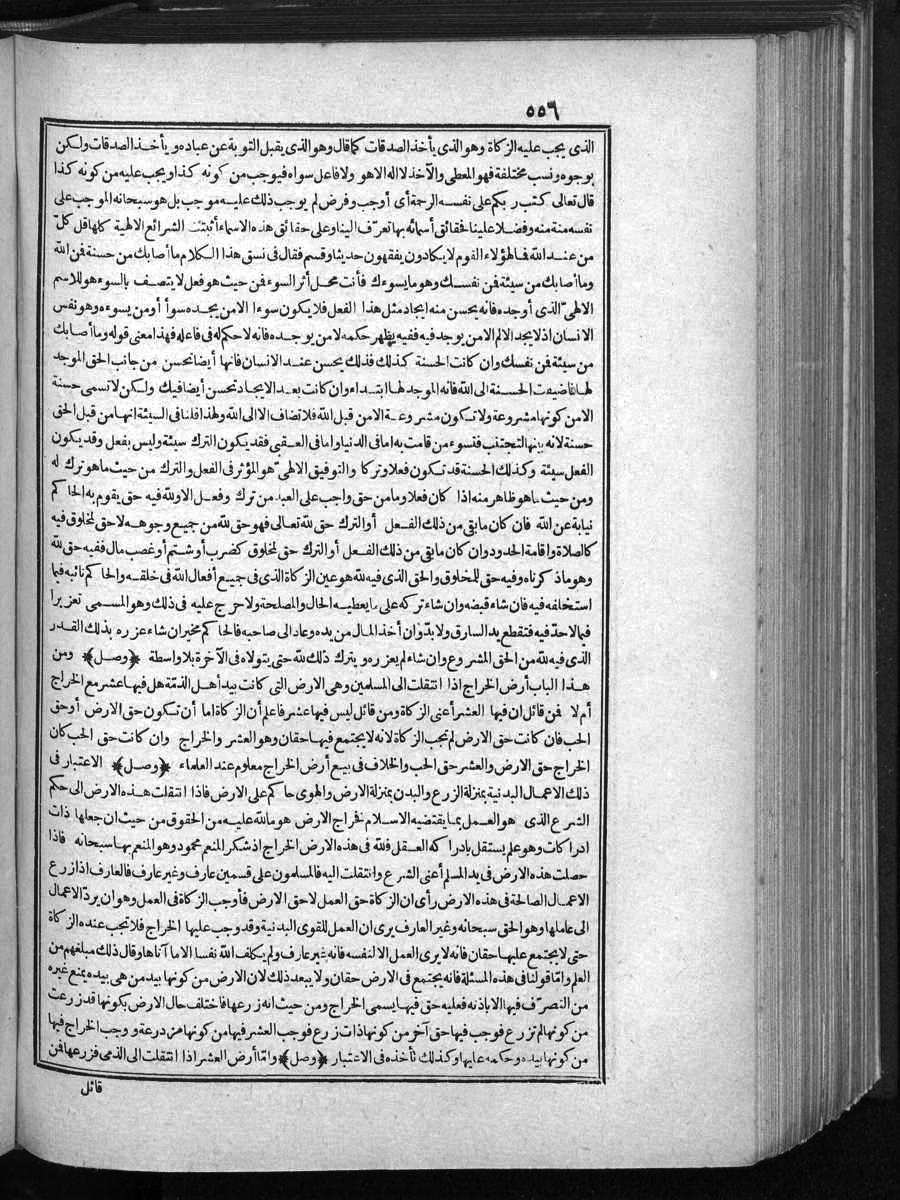 ٥٥٦
الذى يجب عليه الزكاة وهو الذى يأخذ الصدقات كما قال وهو الذى يقبل التوبة عن عباده ويأخذ الصدقات ولكن
بوجوه ونسب مختلفة فهو المعطى والآخذ لا اله الا هو ولا فاعل سواه فيوجب من كونه كذا ويجب عليه من كونه كذا
قال تعالى كتب ربكم على نفسه الرحمة أى أوجب وفرض لم يوجب ذلك عليه موجب بل هو سبحانه الموجب على
نفسه منة منه وفضلا علينا فحقائق أسمائه بها تعرّف الينا وعلى حقائق هذه الاسماء أثبتت الشرائع الالهية كلها قل كلّ
من عند الله فما لهؤلاء القوم لا يكادون يفقهون حديثا وقسم فقال فى نسق هذا الكلام ما أصابك من حسنة فن الله
وما أصابك من سيئة فن نفسك وهو ما يسوءك فأنت محل أثر السوء فن حيث هو فعل لا يتصف بالسوء هو للاسم
الالهىّ الذى أوجده فانه يحسن منه ايجاد مثل هذا الفعل فلا يكون سوءا الا من يجده سوأ أو من يسوءه وهو نفس
الانسان اذ لا يجد الالم الا من يوجد فيه ففيه يظهر حكمه لا من يوجده فانه لا حكم له فى فاعله فهذا معنى قوله وما أصابك
من سيئة فن نفسك وان كانت الحسنة كذلك فذلك يحسن عند الانسان فانها أيضا تحسن من جانب الحق الموجد
لها فأضيفت الحسنة الى الله فانه الموجد لها ابتداء وان كانت بعد الايجاد تحسن أيضا فيك ولكن لا تسمى حسنة
الا من كونها مشروعة ولا تكون مشروعة الا من قبل الله فلا تضاف الا الى الله ولهذا قلنا فى السيئة انها من قبل الحق
حسنة لانه بينها لتجتنب فتسوء من قامت به اما فى الدنيا واما فى العقبى فقد يكون الترك سيئة وليس بفعل وقد يكون
الفعل سيئة وكذلك الحسنة قد تكون فعلا وتركا والتوفيق الالهىّ هو المؤثر فى الفعل والترك من حيث ما هو ترك له
ومن حيث ما هو ظاهر منه اذا كان فعلا وما من حق واجب على العبد من ترك وفعل الا ولله فيه حق يقوم به الحاكم
نيابة عن الله فان كان ما بقى من ذلك الفعل أو الترك حق لله تعالى فهو حق لله من جميع وجوهه لا حق لمخلوق فيه
كالصلاة واقامة الحدود وان كان ما بقى من ذلك الفعل أو الترك حق لمخلوق كضرب أو شتم أو غصب مال ففيه حق لله
وهو ما ذكرناه وفيه حق للمخلوق والحق الذى فيه لله هو عين الزكاة الذى فى جميع أفعال الله فى خلقه والحاكم نائبه فيما
استخلفه فيه فان شاء قبضه وان شاء تركه على ما يعطيه الحال والمصلحة ولا حرج عليه فى ذلك وهو المسمى تعزيرا
فيما لا حدّ فيه فتقطع يد السارق ولا بدّ وان أخذ المال من يده وعاد الى صاحبه فالحاكم مخير ان شاء عزره بذلك القدر
الذى فيه لله من الحق المشروع وان شاء لم يعزره ويترك ذلك لله حتى يتولاه فى الآخرة بلا واسطة ﴿وصل﴾ ومن
هذا الباب أرض الخراج اذا انتقلت الى المسلمين وهى الارض التى كانت بيد أهل الذمّة هل فيها عشر مع الخراج
أم لا فن قائل ان فيها العشر أعنى الزكاة ومن قائل ليس فيها عشر فاعلم أن الزكاة اما أن تكون حق الارض أو حق
الحب فان كانت حق الارض لم تجب الزكاة لانه لا يجتمع فيها حقان وهو العشر والخراج وان كانت حق الحب كان
الخراج حق الارض والعشر حق الحب والخلاف فى بيع أرض الخراج معلوم عند العلماء ﴿وصل﴾ الاعتبار فى
ذلك الاعمال البدنية بمنزلة الزرع والبدن بمنزلة الارض والهوى حاكم على الارض فاذا انتقلت هذه الارض الى حكم
الشرع الذى هو العمل بما يقتضيه الاسلام فخراج الارض هو ما لله عليه من الحقوق من حيث ان جعلها ذات
ادراكات وهو علم يستقل بادراكه العقل فلله فى هذه الارض الخراج اذ شكر المنعم محمود وهو المنعم بها سبحانه فاذا
حصلت هذه الارض فى يد المسلم أعنى الشرع وانتقلت اليه فالمسلمون على قسمين عارف وغير عارف فالعارف اذا زرع
الاعمال الصالحة فى هذه الارض رأى ان الزكاة حق العمل لا حق الارض فأوجب الزكاة فى العمل وهو ان يردّ الاعمال
الى عاملها وهو الحق سبحانه وغير العارف يرى ان العمل للقوى البدنية وقد وجب عليها الخراج فلا تجب عنده الزكاة
حتى لا يجتمع عليها حقان فانه لا يرى العمل الا لنفسه فانه غير عارف ولم يكلف الله نفسا الا ما آتاها وقال ذلك مبلغهم من
العلم وامّا قولنا فى هذه المسئلة فانه يجتمع فى الارض حقان ولا يبعد ذلك لان الارض من كونها بيد من هى بيده يمنع غيره
من التصرّف فيها الا باذنه فعليه حق فيها يسمى الخراج ومن حيث انه زرعها فاختلف حال الارض بكونها قد زرعت
من كونها لم تزرع فوجب فيها حق آخر من كونها ذات زرع فوجب العشر فيها من كونها مزدرعة ووجب الخراج فيها
من كونها بيده وحكمه عليها وكذلك تأخذه فى الاعتبار ﴿وصل﴾ وامّا أرض العشر اذا انتقلت الى الذمى فزرعها فن
قائل